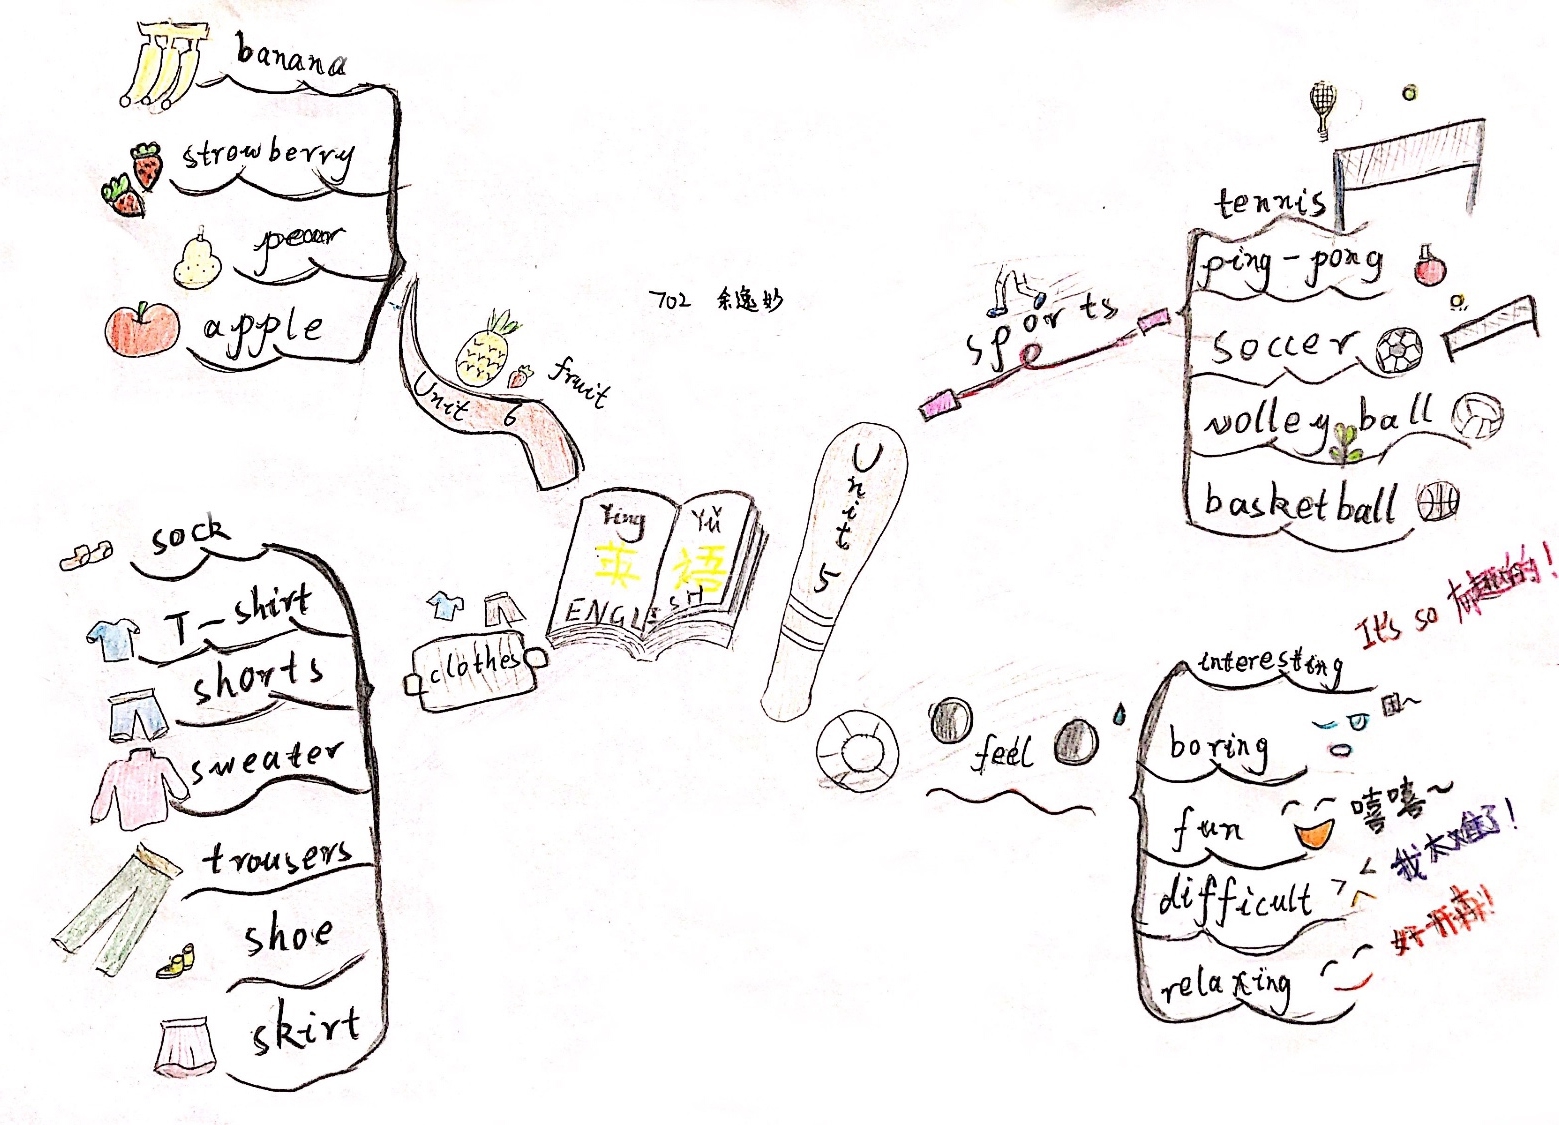 banana
strowberry
pear
apple
Unit 6
fruit
702 余逸妙
sports
tennis
ping-pong
soccer
volleyball
basketball
Unit 5
Yīng Yǔ
英语
ENGLISH
clothes
sock
T-shirt
shorts
sweater
trousers
shoe
skirt
feel
It's so 有趣的!
interesting
boring
困~
fun
嘻嘻~
difficult
我太难了!
relaxing
好开森!